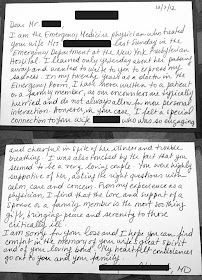 10/7/12
Dear Mr.
I am the Emergency Medicine physician who treated
your wife Mrs. last Sunday in the
Emergency Department at the New York Presbyterian
Hospital. I learned only yesterday about her passing
away and wanted to write to you to express my
sadness. In my twenty years as a doctor in the
Emergency Room, I have never written to a patient
or a family member, as our encounters are typically
hurried and do not always allow for more personal
interaction. However, in your case, I felt a special
connection to your wife who was so engaging
and cheerful in spite of her illness and trouble
breathing. I was also touched by the fact that you
seemed to be a very loving couple. You were highly
supportive of her, asking the right questions with
calm, care and concern. From my experience as a
physician, I find that the love and support of a
spouse or a family member is the most soothing
gift, bringing peace and serenity to those
critically ill.
I am sorry for your loss and I hope you can find
comfort in the memory of your wife's great spirit
and of your loving bond. My heartfelt condolences
go out to you and your family.
MD